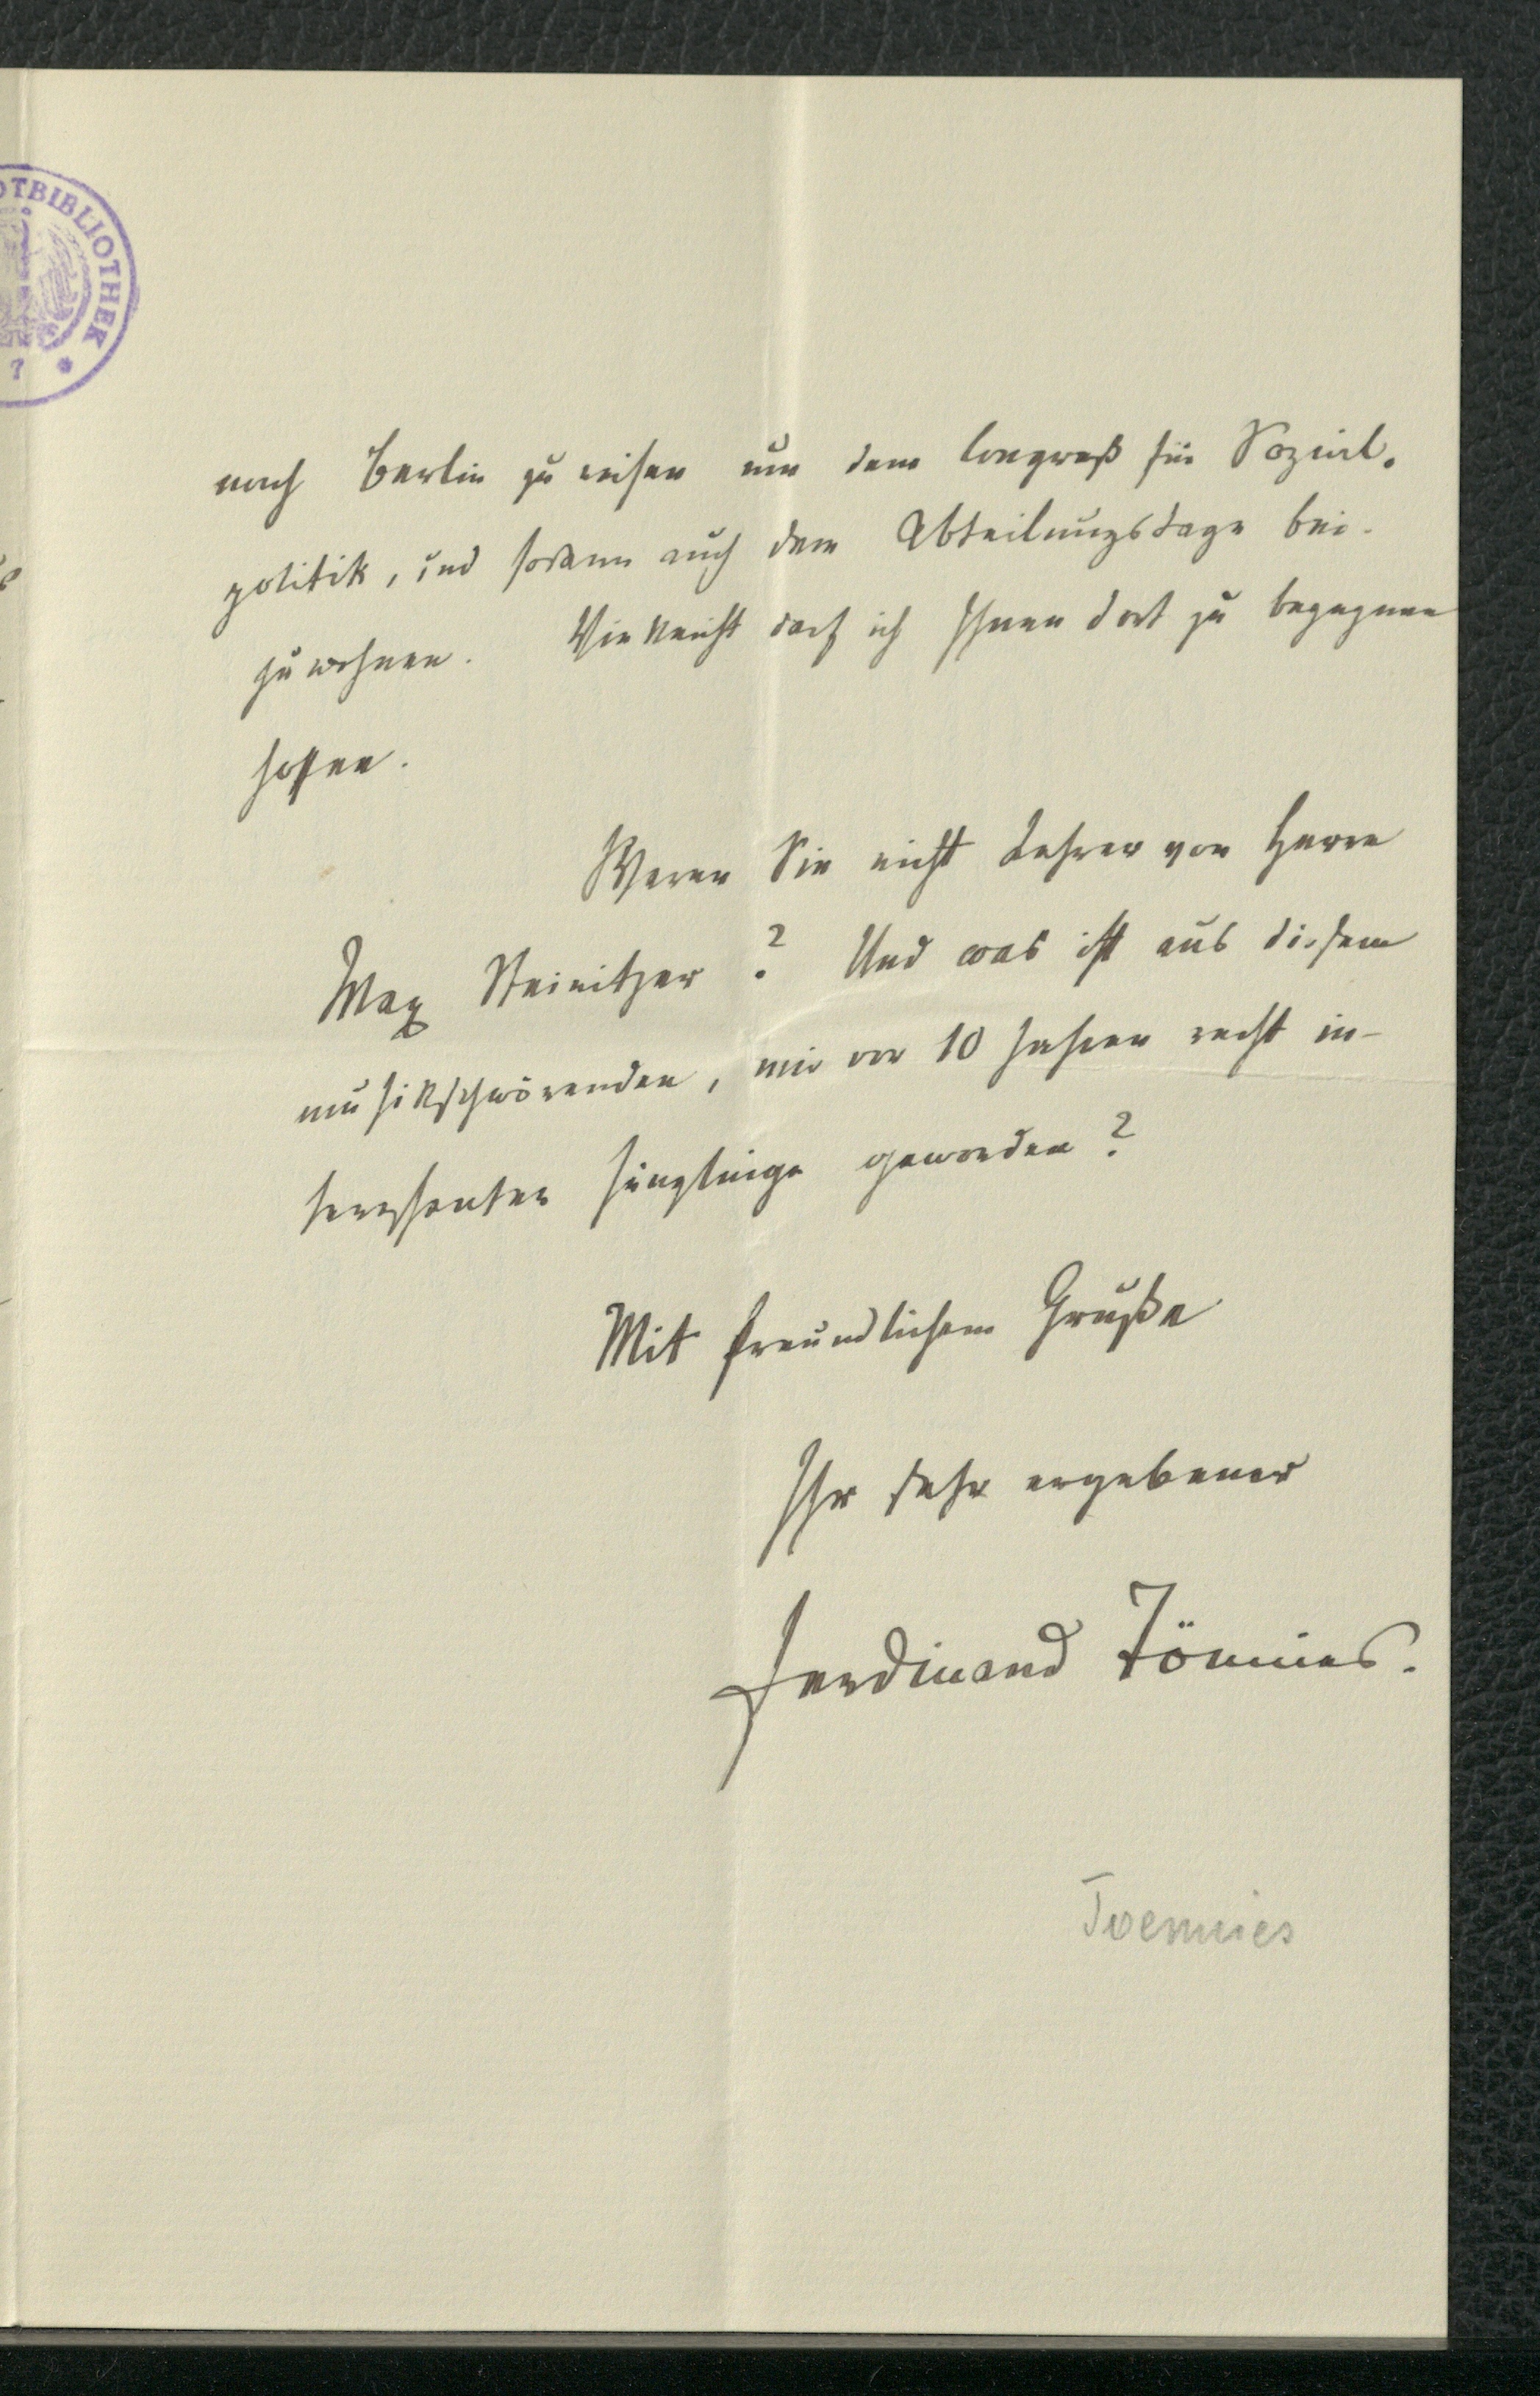 DTBIBLIOTHEK
7 *
nach Berlin zu reisen um dem Congreß für Sozial-
politik, und sodann auch dem Abteilungstage bei-
zuwohnen. Vielleicht darf ich Ihnen dort zu begegnen
hoffen.
Waren Sie nicht Lehrer von Herrn
Max Steinitzer? Und was ist aus diesem
musikschwörenden, mir vor 10 Jahren recht in-
teressanten Jünglinge geworden?
Mit freundlichem Gruße
Ihr sehr ergebener
Ferdinand Tönnies.
Toennies